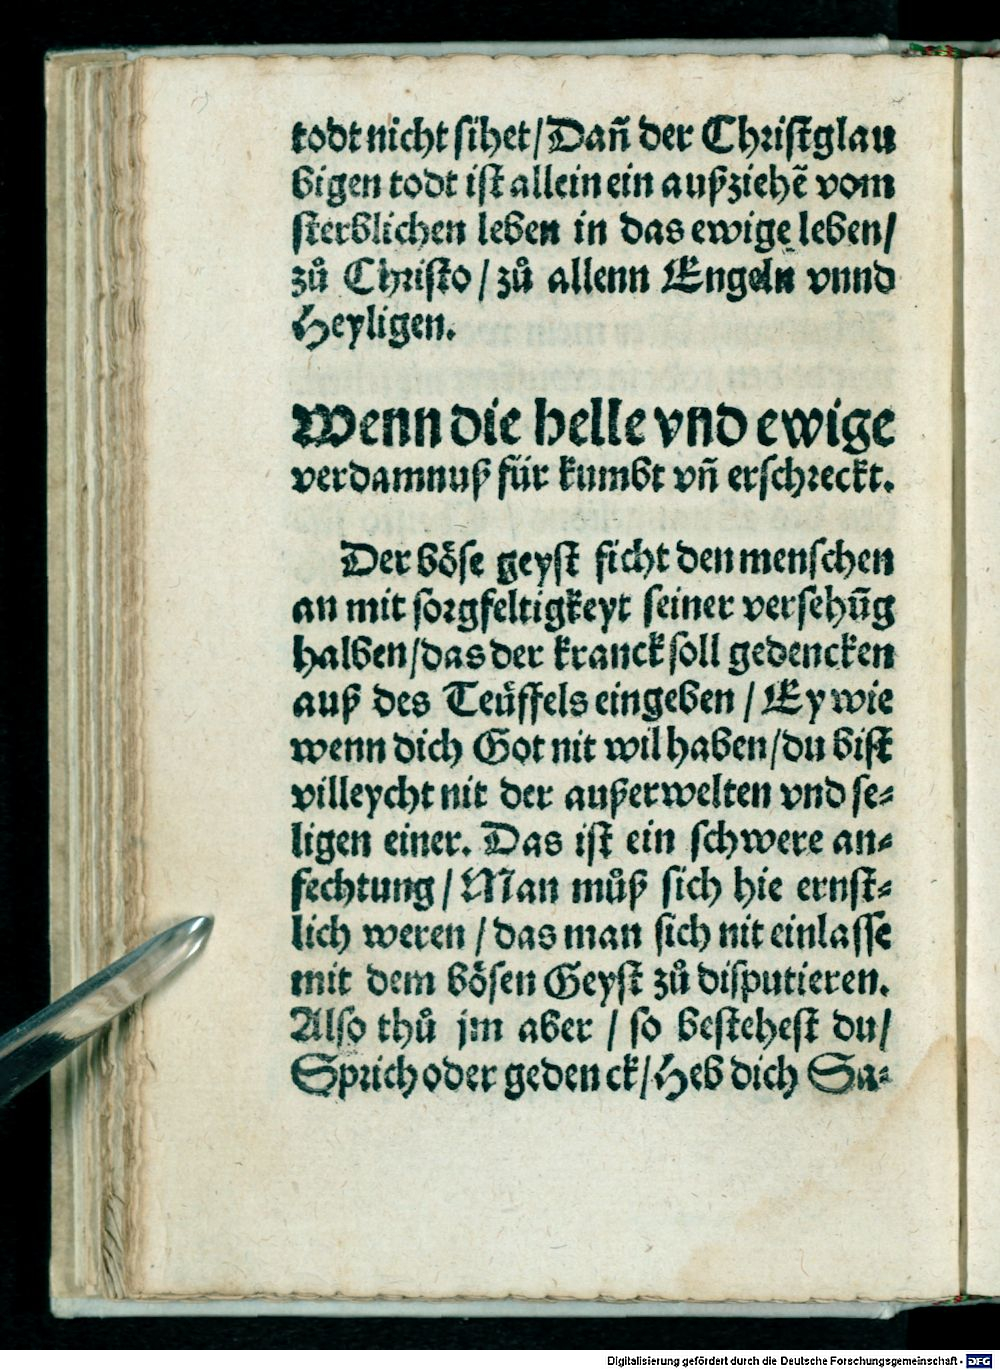 todt nicht sihet/Dañ der Christglau
bigen todt ist allein ein außziehẽ vom
sterblichen leben in das ewige leben/
zů Christo / zů allenn Engeln vnnd
Heyligen.
Wenn die helle vnd ewige
verdamnuß für kumbt vñ erschreckt.
Der böse geyst ficht den menschen
an mit sorgfeltigkeyt seiner versehũg
halben/das der kranck soll gedencken
auß des Teüffels eingeben / Ey wie
wenn dich Got nit wil haben/du bist
villeycht nit der außerwelten vnd se⸗
ligen einer. Das ist ein schwere an⸗
fechtung / Man můß sich hie ernst⸗
lich weren / das man sich nit einlasse
mit dem bösen Geyst zů disputieren.
Also thů jm aber / so bestehest du/
Sprich oder gedenck/Heb dich Sa⸗
Digitalisierung gefördert durch die Deutsche Forschungsgemeinschaft - DFG